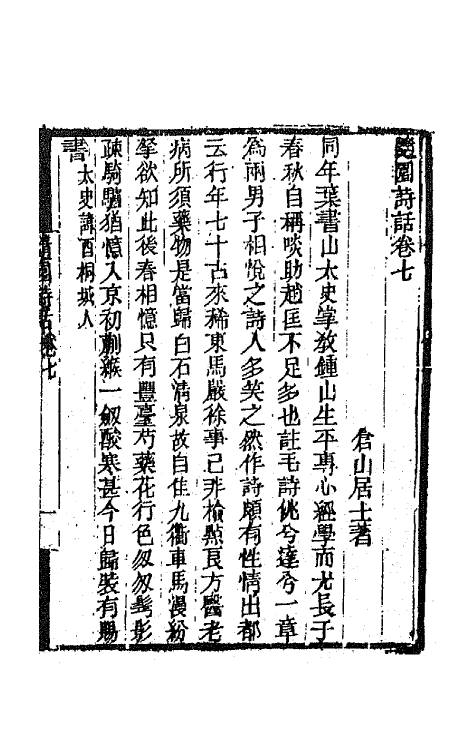 隨園詩話卷七
倉山居士著
同年葉書山太史掌敎鍾山生平專心經學而尤長于
春秋自稱啖助趙匡不足多也註毛詩佻兮達兮一章
爲兩男子相悅之詩人多笑之然作詩頗有性情出都
云行年七十古來稀東馬嚴徐事已非檢點良方醫老
病所須藥物是當歸白石淸泉故自佳九衢車馬漫紛
拏欲知此後春相憶只有豐臺芍藥花行色匆匆髩影
疎騎驢猶憶入京初蒯緱一劔酸寒甚今日歸裝有賜
書太史諱酉桐城人
隨園詩話卷七
一